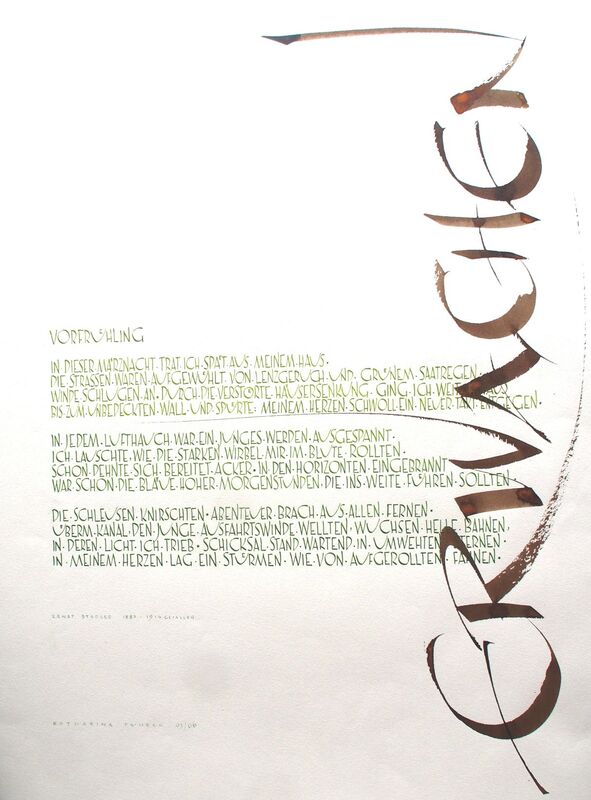 ERWACHEN
VORFRÜHLING
IN DIESER MÄRZNACHT TRAT ICH SPÄT AUS MEINEM HAUS·
DIE STRASSEN WAREN AUFGEWÜHLT VON LENZGERUCH UND GRÜNEM SAATREGEN·
WINDE SCHLUGEN AN· DURCH DIE VERSTÖRTE HÄUSERSENKUNG GING ICH WEIT HINAUS
BIS ZUM UNBEDECKTEN WALL UND SPÜRTE: MEINEM HERZEN SCHWOLL EIN NEUER TAKT ENTGEGEN·
IN JEDEM LUFTHAUCH WAR EIN JUNGES WERDEN AUSGESPANNT·
ICH LAUSCHTE, WIE DIE STARKEN WIRBEL MIR IM BLUTE ROLLTEN·
SCHON DEHNTE SICH BEREITET ACKER· IN DEN HORIZONTEN EINGEBRANNT
WAR SCHON DIE BLÄUE HOHER MORGENSTUNDEN, DIE INS WEITE FÜHREN SOLLTEN·
DIE SCHLEUSEN KNIRSCHTEN· ABENTEUER BRACH AUS ALLEN FERNEN·
ÜBERM KANAL, DEN JUNGE AUSFAHRTSWINDE WELLTEN, WUCHSEN HELLE BAHNEN,
IN DEREN LICHT ICH TRIEB· SCHICKSAL STAND WARTEND IN UMWEHTEN STERNEN·
IN MEINEM HERZEN LAG EIN STÜRMEN WIE VON AUFGEROLLTEN FAHNEN·
ERNST STADLER 1883 · 1914 GEFALLEN
KATHARINA